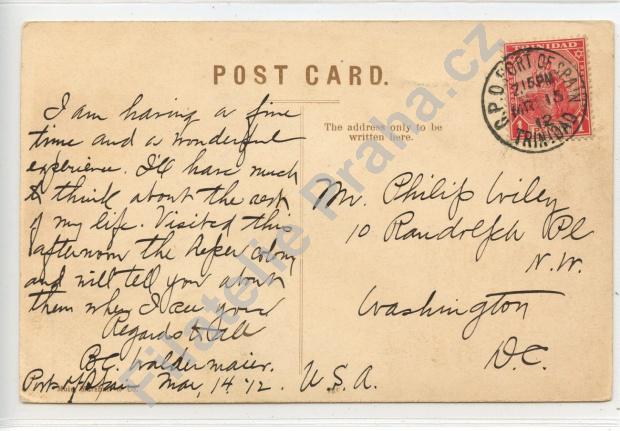 POST CARD.
TRINIDAD
G.P.O. PORT OF SPAIN
7 15 PM
MR 15
12
TRINIDAD
I am having a fine
time and a wonderful
experience. I'll have much
to think about the rest
of my life. Visited this
afternoon the leper colony
and will tell you about
them when I see you
Regards to all
B.C. Waldermaier.
Port of Spain Mar, 14 '12
The address only to be
written here.
Mr. Philip Wiley
10 Randolph Pl
N.W.
Washington
D.C.
U.S.A.
Filatelie Praha.cz